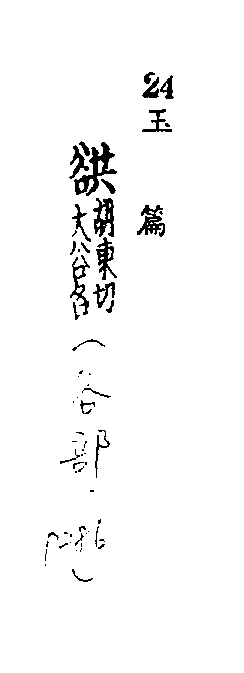 24
玉篇
谼胡東切
大谷名(谷部.p286)